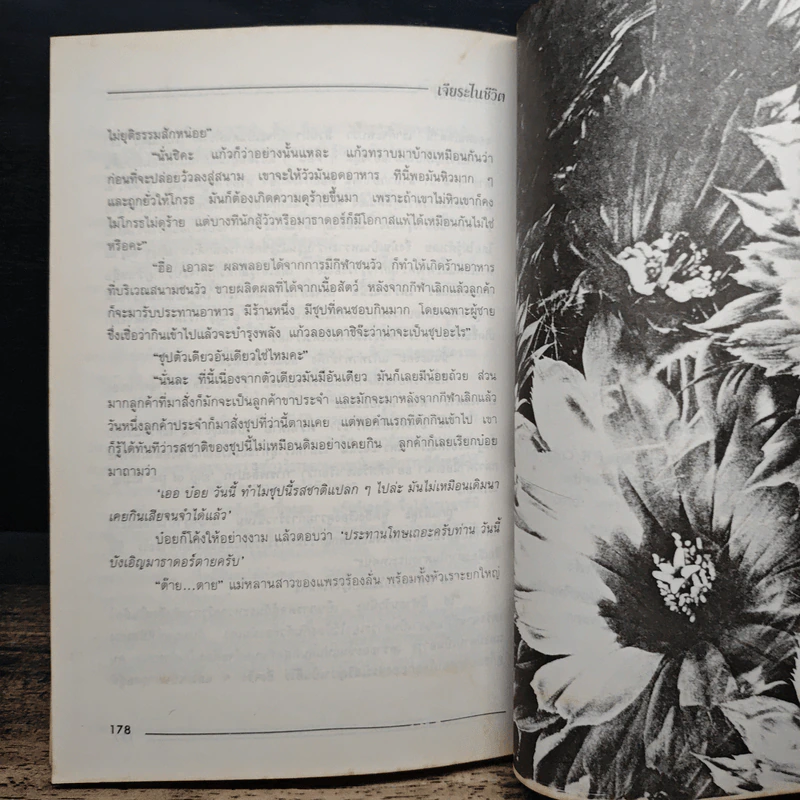 เจียระไนชีวิต
ไม่ยุติธรรมสักหน่อย”
“นั่นซิคะ แก้วก็ว่าอย่างนั้นแหละ แก้วทราบมาบ้างเหมือนกันว่า
ก่อนที่จะปล่อยวัวลงสู่สนาม เขาจะให้วัวมันอดอาหาร ทีนี้พอมันหิวมาก ๆ
และถูกยั่วให้โกรธ มันก็ต้องเกิดความดุร้ายขึ้นมา เพราะถ้าเขาไม่หิวเขาก็คง
ไม่โกรธไม่ดุร้าย แต่บางทีนักสู้วัวหรือมาธาดอร์ก็มีโอกาสแพ้ได้เหมือนกันไม่ใช่
หรือคะ”
“ฮื่อ เอาละ ผลพลอยได้จากการมีกีฬาชนวัว ก็ทำให้เกิดร้านอาหาร
ที่บริเวณสนามชนวัว ขายผลิตผลที่ได้จากเนื้อสัตว์ หลังจากกีฬาเลิกแล้วลูกค้า
ก็จะมารับประทานอาหาร มีร้านหนึ่ง มีซุปที่คนชอบกินมาก โดยเฉพาะผู้ชาย
ซึ่งเชื่อว่ากินเข้าไปแล้วจะบำรุงพลัง แก้วลองเดาซิจ๊ะว่าน่าจะเป็นซุปอะไร”
“ซุปตัวเดียวอันเดียวใช่ไหมคะ”
“นั่นละ ทีนี้เนื่องจากตัวเดียวมันมีอันเดียว มันก็เลยมีน้อยถ้วย ส่วน
มากลูกค้าที่มาสั่งก็มักจะเป็นลูกค้าขาประจำ และมักจะมาหลังจากกีฬาเลิกแล้ว
วันหนึ่งลูกค้าประจำก็มาสั่งซุปที่ว่านี้ตามเคย แต่พอคำแรกที่ตักกินเข้าไป เขา
ก็รู้ได้ทันทีว่ารสชาติของซุปนี้ไม่เหมือนเดิมอย่างเคยกิน ลูกค้าก็เลยเรียกบ๋อย
มาถามว่า
‘เออ บ๋อย วันนี้ ทำไมซุปนี้รสชาติแปลก ๆ ไปล่ะ มันไม่เหมือนเดิมนา
เคยกินเสียจนจำได้แล้ว’
บ๋อยก็โค้งให้อย่างงาม แล้วตอบว่า ‘ประทานโทษเถอะครับท่าน วันนี้
บังเอิญมาธาดอร์ตายครับ’
“ต๊าย...ตาย” แม่หลานสาวของแพรวร้องลั่น พร้อมทั้งหัวเราะยกใหญ่
178